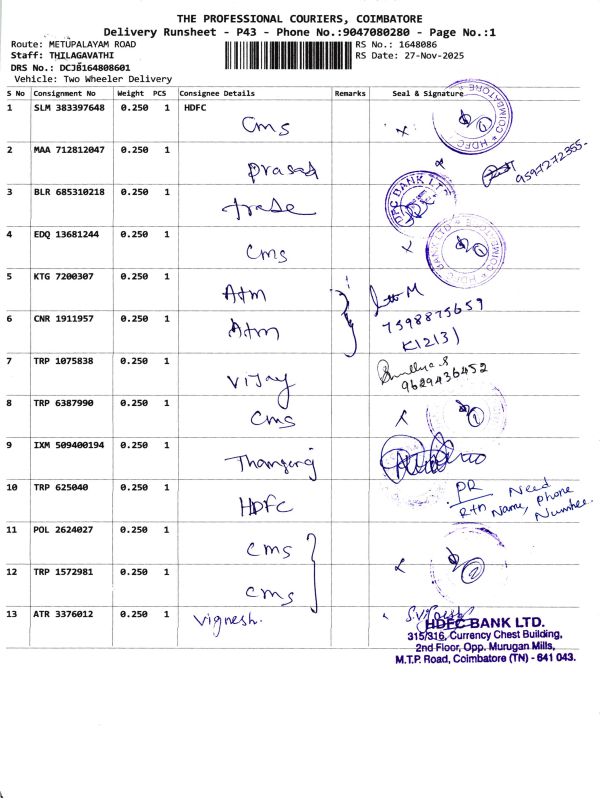 THE PROFESSIONAL COURIERS, COIMBATORE
Delivery Runsheet - P43 - Phone No.:9047080280 - Page No.:1
Route: METUPALAYAM ROAD
RS No.: 1648086
Staff: THILAGAVATHI
RS Date: 27-Nov-2025
DRS No.: DCJB164808601
Vehicle: Two Wheeler Delivery
S No Consignment No Weight PCS Consignee Details Remarks Seal & Signature
1 SLM 383397648 0.250 1 HDFC
cms
HDFC COIMBATORE
2 MAA 712812047 0.250 1
prasad
9597272355
3 BLR 685310218 0.250 1
trade
HDFC BANK LTD
4 EDQ 13681244 0.250 1
cms
HDFC BANK LTD COIMBATORE
5 KTG 7200307 0.250 1
Atm
M
6 CNR 1911957 0.250 1
Atm
7598875659
K12131
7 TRP 1075838 0.250 1
Vijay
9629436452
8 TRP 6387990 0.250 1
cms
9 IXM 509400194 0.250 1
10 TRP 625040 0.250 1
HDFC
PR
Rtn Need
Name, Phone
Number
11 POL 2624027 0.250 1
cms
12 TRP 1572981 0.250 1
cms
13 ATR 3376012 0.250 1
Vignesh.
HDFC BANK LTD.
315/316, Currency Chest Building,
2nd Floor, Opp. Murugan Mills,
M.T.P. Road, Coimbatore (TN) - 641 043.